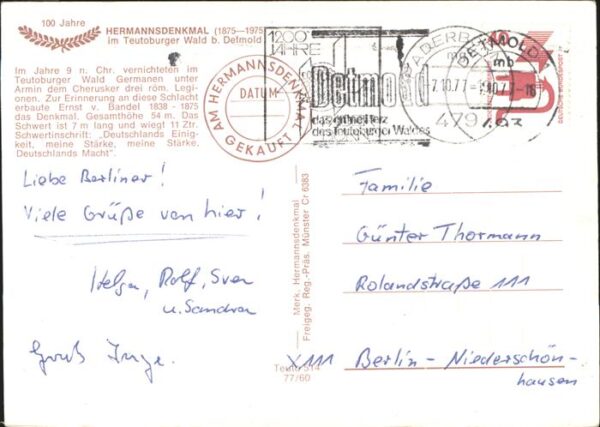 100 Jahre
HERMANNSDENKMAL (1875-1975)
im Teutoburger Wald b. Detmold
Im Jahre 9 n. Chr. vernichteten im
Teutoburger Wald Germanen unter
Armin dem Cherusker drei röm. Legi-
onen. Zur Erinnerung an diese Schlacht
erbaute Ernst v. Bandel 1838 - 1875
das Denkmal. Gesamthöhe 54 m. Das
Schwert ist 7 m lang und wiegt 11 Ztr.
Schwertinschrift: „Deutschlands Einig-
keit, meine Stärke, meine Stärke,
Deutschlands Macht".
AM HERMANNSDENKMAL
DATUM
GEKAUFT
1200
JAHRE
Detmold
das grüne Herz
des Teutoburger Waldes
PADERBORN
DETMOLD
mb
479
Liebe Berliner!
Viele Grüße von hier!
Helga, Rolf, Sven
u. Sandra
Gruß Inge.
Merk. Hermannsdenkmal
Freigeg. Reg.-Präs. Münster Cr 6383
Teuto 514
77/60
Familie
Günter Thormann
Rolandstraße 111
X 111 Berlin - Niederschön-
hausen